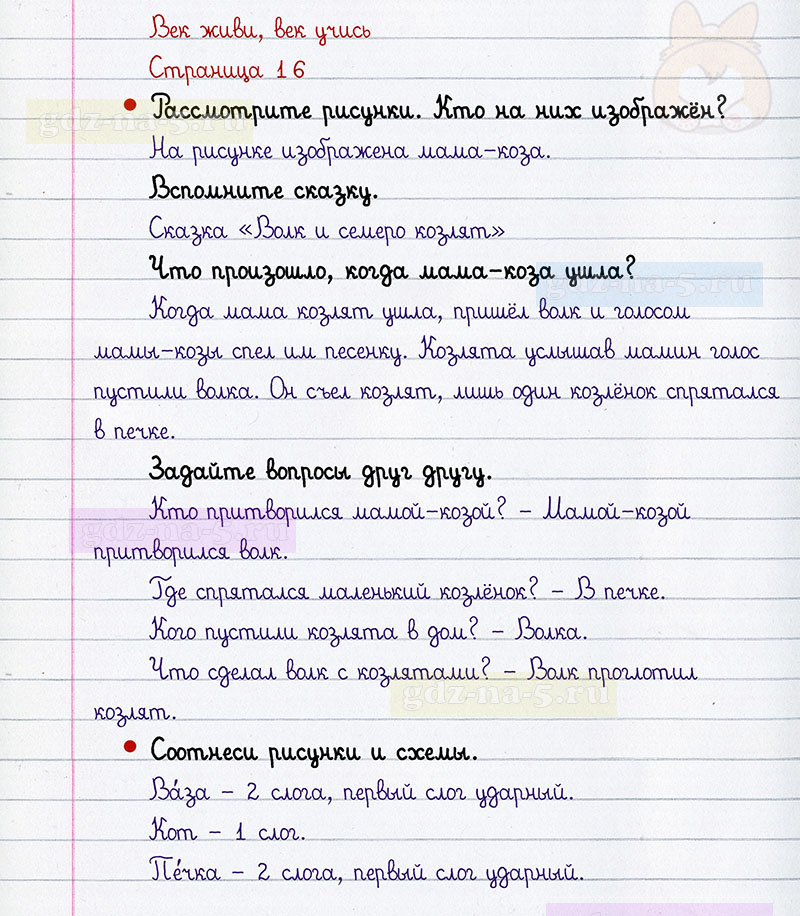 Век живи, век учись
Страница 16
• Рассмотрите рисунки. Кто на них изображён?
gdz-na-5.ru
На рисунке изображена мама-коза.
Вспомните сказку.
Сказка «Волк и семеро козлят»
Что произошло, когда мама-коза ушла?
gdz-na-5.ru
Когда мама козлят ушла, пришёл волк и голосом
мамы-козы спел им песенку. Козлята услышав мамин голос
пустили волка. Он съел козлят, лишь один козлёнок спрятался
в печке.
Задайте вопросы друг другу.
Кто притворился мамой-козой? – Мамой-козой
gdz-na-5.ru
притворился волк.
Где спрятался маленький козлёнок? – В печке.
Кого пустили козлята в дом? – Волка.
Что сделал волк с козлятами? – Волк проглотил
gdz-na-5.ru
козлят.
• Соотнеси рисунки и схемы.
Ва́за – 2 слога, первый слог ударный.
Кот – 1 слог.
Пе́чка – 2 слога, первый слог ударный.